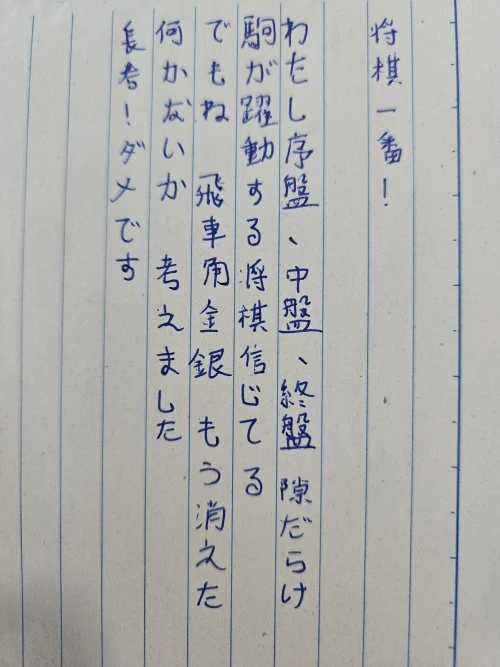 将棋一番！
わたし序盤、中盤、終盤 隙だらけ
駒が躍動する将棋信じてる
でもね 飛車角金銀 もう消えた
何かないか 考えました
長考！ダメです